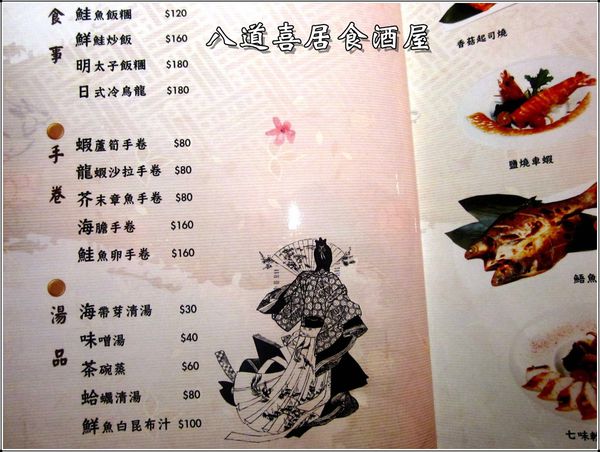 八道喜居食酒屋
食事
鮭魚飯糰 $120
鮮鮭炒飯 $160
明太子飯糰 $180
日式冷烏龍 $180
手卷
蝦蘆筍手卷 $80
龍蝦沙拉手卷 $80
芥末章魚手卷 $80
海膽手卷 $160
鮭魚卵手卷 $160
湯品
海帶芽清湯 $30
味噌湯 $40
茶碗蒸 $60
蛤蠣清湯 $80
鮮魚白昆布汁 $100
香菇起司燒
鹽燒車蝦
鯃魚
七味